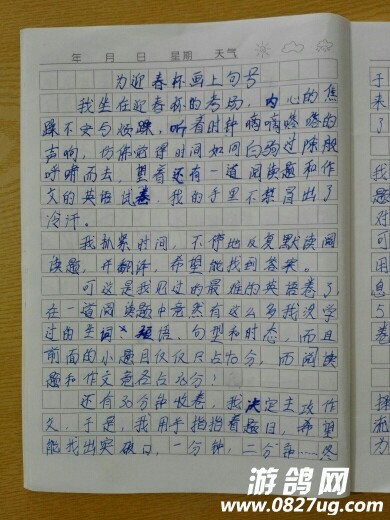 年 月 日 星期 天气
为迎春杯画上句号
我坐在迎春杯的考场，内心的焦
躁不安与烦躁，听着时钟嘀嘀嗒嗒的
声响，仿佛觉得时间如同白驹过隙般
呼啸而去，望着还有一道阅读题和作
文的英语试卷，我的手里不禁冒出了
冷汗。
我抓紧时间，不停地反复默读阅
读题，并翻译，希望能找到答案。
可这是我见过的最难的英语卷了，
在一道阅读题中竟然有这么多我没学
过的生词、短语、句型和时态，而且
前面的小题目仅仅只占70分，而阅读
题和作文竟各占30分！
还有30分钟收卷，我决定去攻作
文。于是，我用手指指着题目，希望
能找出突破口，一分钟，二分钟……终
于
来
了
游鸽网
www.0827ug.com